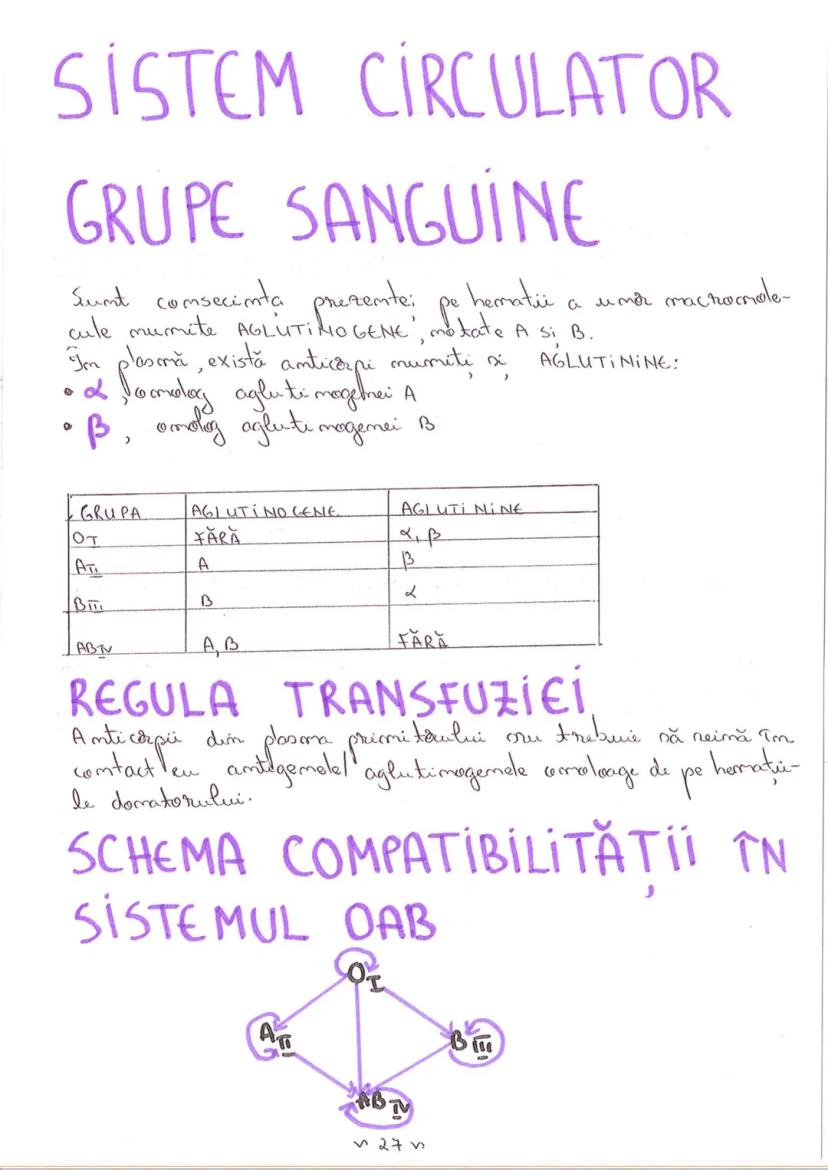 SISTEM CIRCULATOR
GRUPE SANGUINE
Sunt consecința prezenței pe hematii a unor macromole-
cule numite AGLUTINOGENE, notate A si B.
În plasmă, există anticorpi numiți și AGLUTININE:
• α, omolog aglutinogenei A
• β, omolog aglutinogenei B
GRUPA AGLUTINOGENE AGLUTININE
OI FĂRĂ α, β
AII A β
BIII B α
ABIV A, B FĂRĂ
REGULA TRANSFUZIEI
Anticorpii din plasma primitorului nu trebuie să reină în
contact cu antigenele/aglutinogenele omoloage de pe hematii-
le donatorului.
SCHEMA COMPATIBILITĂȚII ÎN
SISTEMUL OAB
OI
AII BIII
ABIV
~ 27 ~